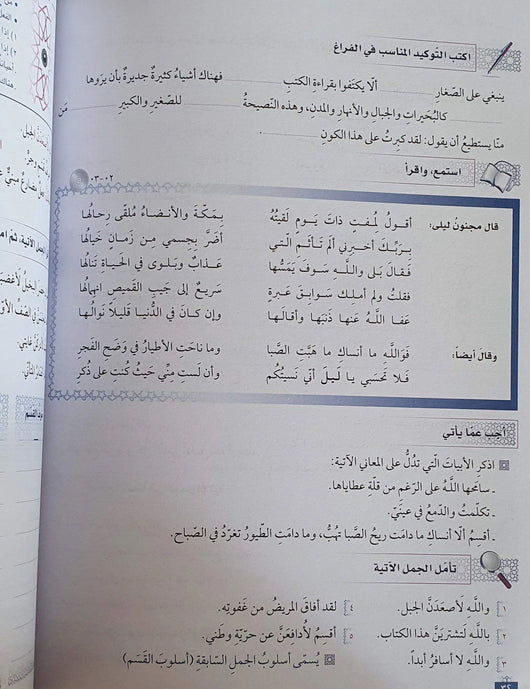 اكتب التّوكيد المناسب في الفراغ
ينبغي على الصِّغارِ ........ ألّا يكتَفوا بقراءةِ الكتبِ ........ فهناك أشياءُ كثيرةٌ جديرةٌ بأن يرَوها
........ كالبُحَيراتِ والجبالِ والأنهارِ والمدنِ، وهذه النّصيحةُ ........ للصّغيرِ والكبيرِ ........ مَن
منّا يستطيعُ أن يقول: لقد كبِرتُ على هذا الكونِ ........
استمع، واقرأ
٠٢-٠٣
قال مجنونُ ليلى:
أقـولُ لمُفتٍ ذاتَ يَـومٍ لَقيتُهُ بمَكّـةَ والأنضـاءُ مُلقًى رِحالُها
بِرَبّـكَ أخبِرني ألَـم تَـأثَـمِ الّتي أضَرَّ بِجِسمي مِن زَمـانٍ خَيالُها
فَقـالَ بَلى واللَّـهِ سَـوفَ يَمَسُّها عَـذابٌ وبَلوى في الحَيـاةِ تَنالُها
فقلتُ ولم أملِك سَوابِـقَ عَبرةٍ سَريعٍ إلى جَيبِ القَميصِ انهِمالُها
عَفا اللَّهُ عَنها ذَنبَها وأقالَها وإن كانَ في الدُّنيا قَليلًا نَوالُها
وقال أيضاً:
فَوَاللَّهِ ما أنساكِ ما هَبَّتِ الصَّبا وما ناحَتِ الأطيارُ في وَضَحِ الفَجرِ
فَـلا تَحسَبي يـا لَـيلَ أنّي نَسيتُكُم وأن لَستِ مِنّي حَيثُ كُنتِ على ذُكرِ
أجب عمّا يأتي
اذكر الأبياتَ الّتي تدُلُّ على المعاني الآتية:
ـ سامَحها اللَّهُ على الرّغمِ من قلّةِ عطاياها.
ـ تكلّمتُ والدّمعُ في عينَيّ.
ـ أقسِمُ ألّا أنساكِ ما دامَت ريحُ الصَّبا تهُبُّ، وما دامَتِ الطّيورُ تغرّدُ في الصّباح.
تأمّل الجمل الآتية
١ واللَّهِ لَأصعَدَنَّ الجبل.
٤ لقد أفاقَ المريضُ من غَفوتِه.
٢ باللَّهِ لَتشترِيَنَّ هذا الكتاب.
٥ أقسِمُ لَأدافِعَنَّ عن حرّيّةِ وطَني.
٣ واللَّهِ لا أسافرُ أبداً.
يُسمّى أسلوبُ الجملِ السّابقة (أسلوبَ القَسَم)
٣٤